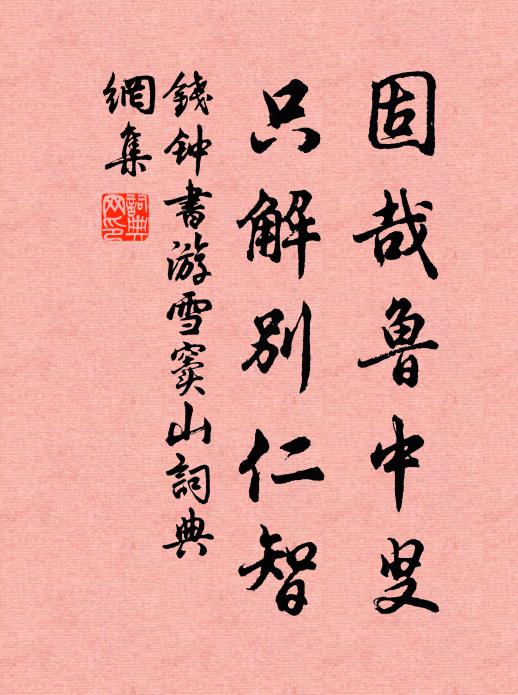 固哉鲁中叟
只解别仁智
錢钟書游雪窦山詞典
網集
詞典
网印